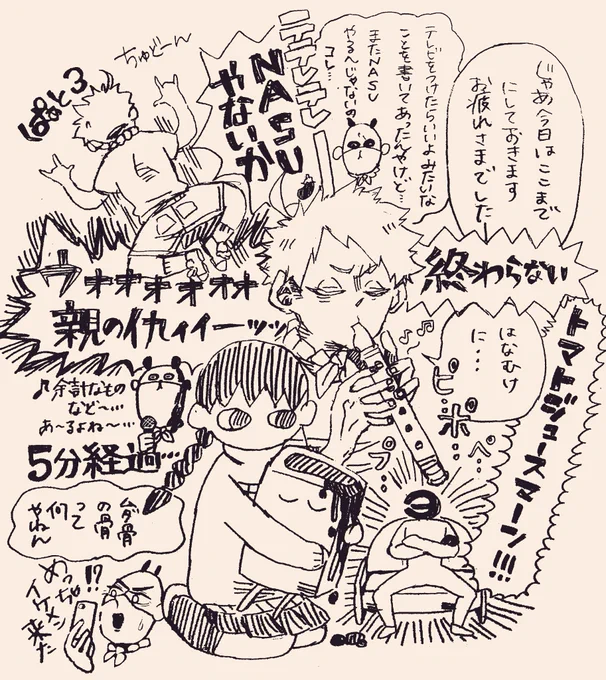 じゃあ今日はここまで
にしておきます
お疲れさまでした
テレビをつけたらいいよみたいな
ことを書いてあったんやけど…
またNASU
やる〜じゃないの
コレ…
NASU
やないか
ちゅどーん
ぱぁと3
終わらない
ウォオオオオオオ
親の仇ィィーッッ
はなむけ
に…
トマトジュースマーン!!!
ピ
ポ
ペ…
プ…
♪余計なもの
など〜…
あ〜るよね〜…
5分経過…
の骨
って
何
やねん
!?
めっちゃ
イケメン
来た